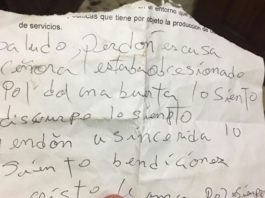 un entorno
icas que tiene por objeto la producción de
de servicios.
aludo, perdon escusa
señora estaba obresionado
Pol doña buerta lo siento
discurpo lo siento
endon usincerida lo
siento bendiciones
cristo